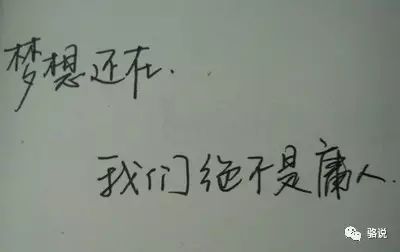 梦想还在.
我们绝不是庸人.
骆说